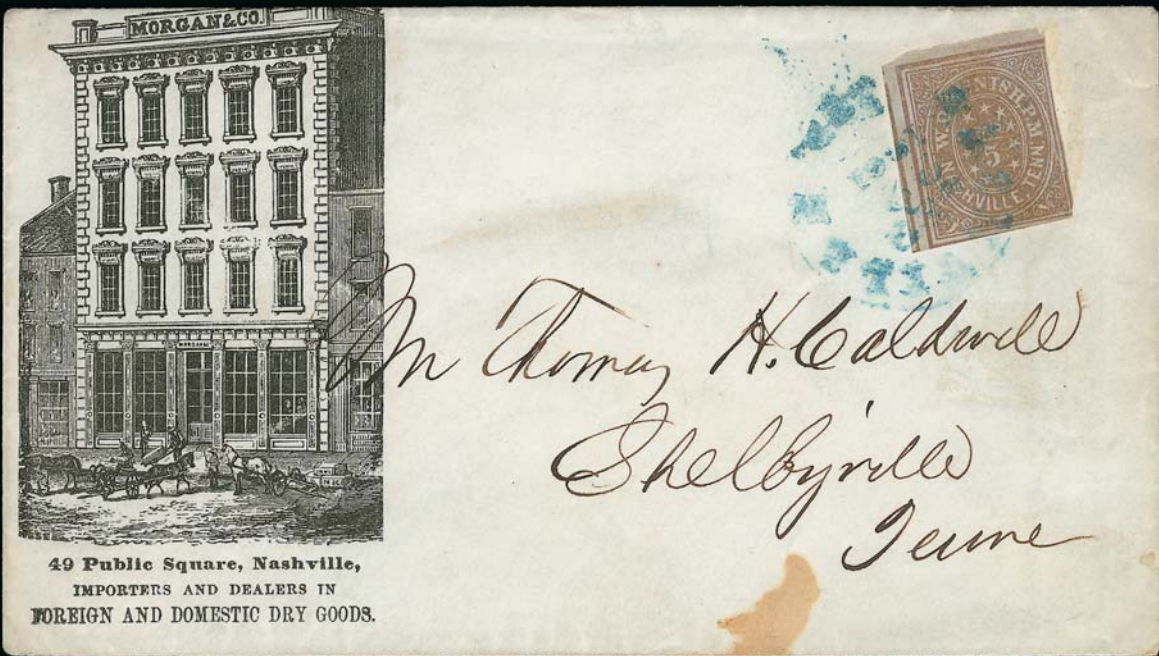 MORGAN & CO.
MORGAN&CO
49 Public Square, Nashville,
IMPORTERS AND DEALERS IN
FOREIGN AND DOMESTIC DRY GOODS.
W.D. NISH. P.M.
5
NASHVILLE, TENN
Mr Thomas H. Caldwell
Shelbyville
Tenne